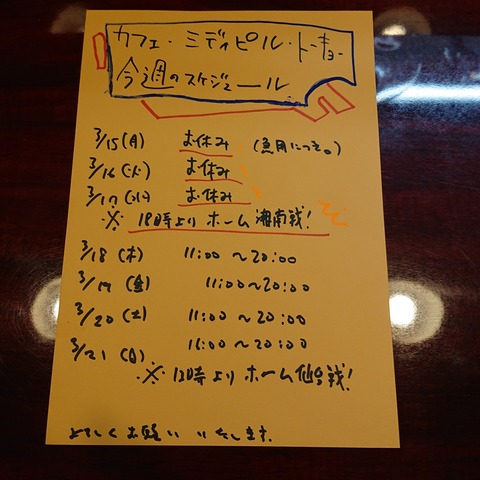 カフェ・ミディピル・トーキョー
今週のスケジュール
3/15(月) お休み (急用につき。)
3/16(火) お休み
3/17(水) お休み
※ 18時より ホーム 湘南戦!
3/18(木) 11:00〜20:00
3/19(金) 11:00〜20:00
3/20(土) 11:00〜20:00
3/21(日) 16:00〜20:00
※ 13時より ホーム 仙台戦!
よろしくお願いいたします。